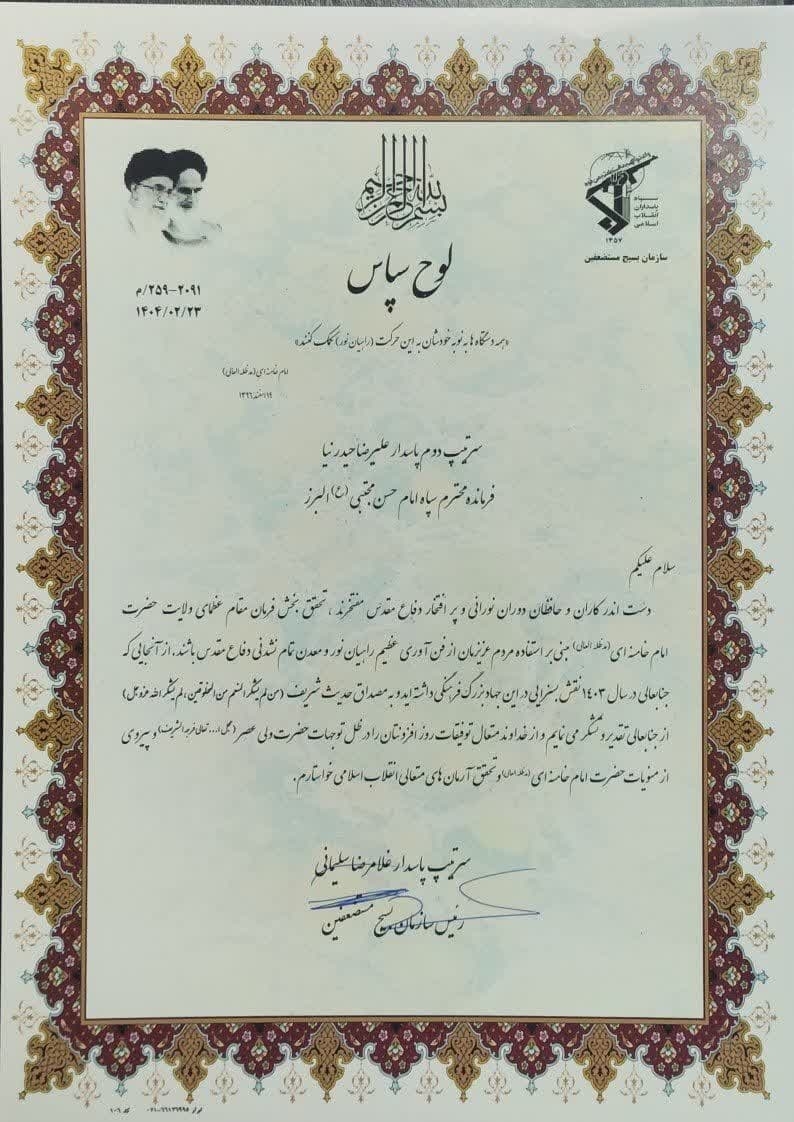 بسم الله الرحمن الرحیم
سپاه
پاسداران
انقلاب
اسلامی
۱۳۵۷
سازمان بسیج مستضعفین
لوح سپاس
۲۵۹-۲۰۹۱/م
۱۴۰۴/۰۲/۲۳
«همه دستگاه ها به نوبه خودشان به این حرکت (راهیان نور) کمک کنند»
امام خامنه ای (مدظله العالی)
سرتیپ دوم پاسدار علیرضا حیدرنیا
فرمانده محترم سپاه امام حسن مجتبی (ع) البرز
سلام علیکم
دست اندر کاران و حافظان دوران نورانی و پر افتخار دفاع مقدس مفتخرند ، تحقق بخش فرمان مقام عظمای ولایت حضرت
امام خامنه ای (مدظله العالی) مبنی بر استفاده مردم عزیزمان از فن آوری عظیم راهیان نور و معدن تمام نشدنی دفاع مقدس باشند. از آنجایی که
جنابعالی در سال ۱۴۰۳ نقش بسزایی در این جهاد بزرگ فرهنگی داشته اید و به مصداق حدیث شریف (من لم یشکر المنعم من المخلوقین، لم یشکر الله عزوجل)
از جنابعالی تقدیر و تشکر می نمایم و از خداوند متعال توفیقات روز افزونتان را در ظل توجهات حضرت ولی عصر (عجل ا... تعالی فرجه الشریف) و پیروی
از منویات حضرت امام خامنه ای (مدظله العالی) و تحقق آرمان های متعالی انقلاب اسلامی خواستارم.
سرتیپ پاسدار غلامرضا سلیمانی
رئیس سازمان بسیج مستضعفین